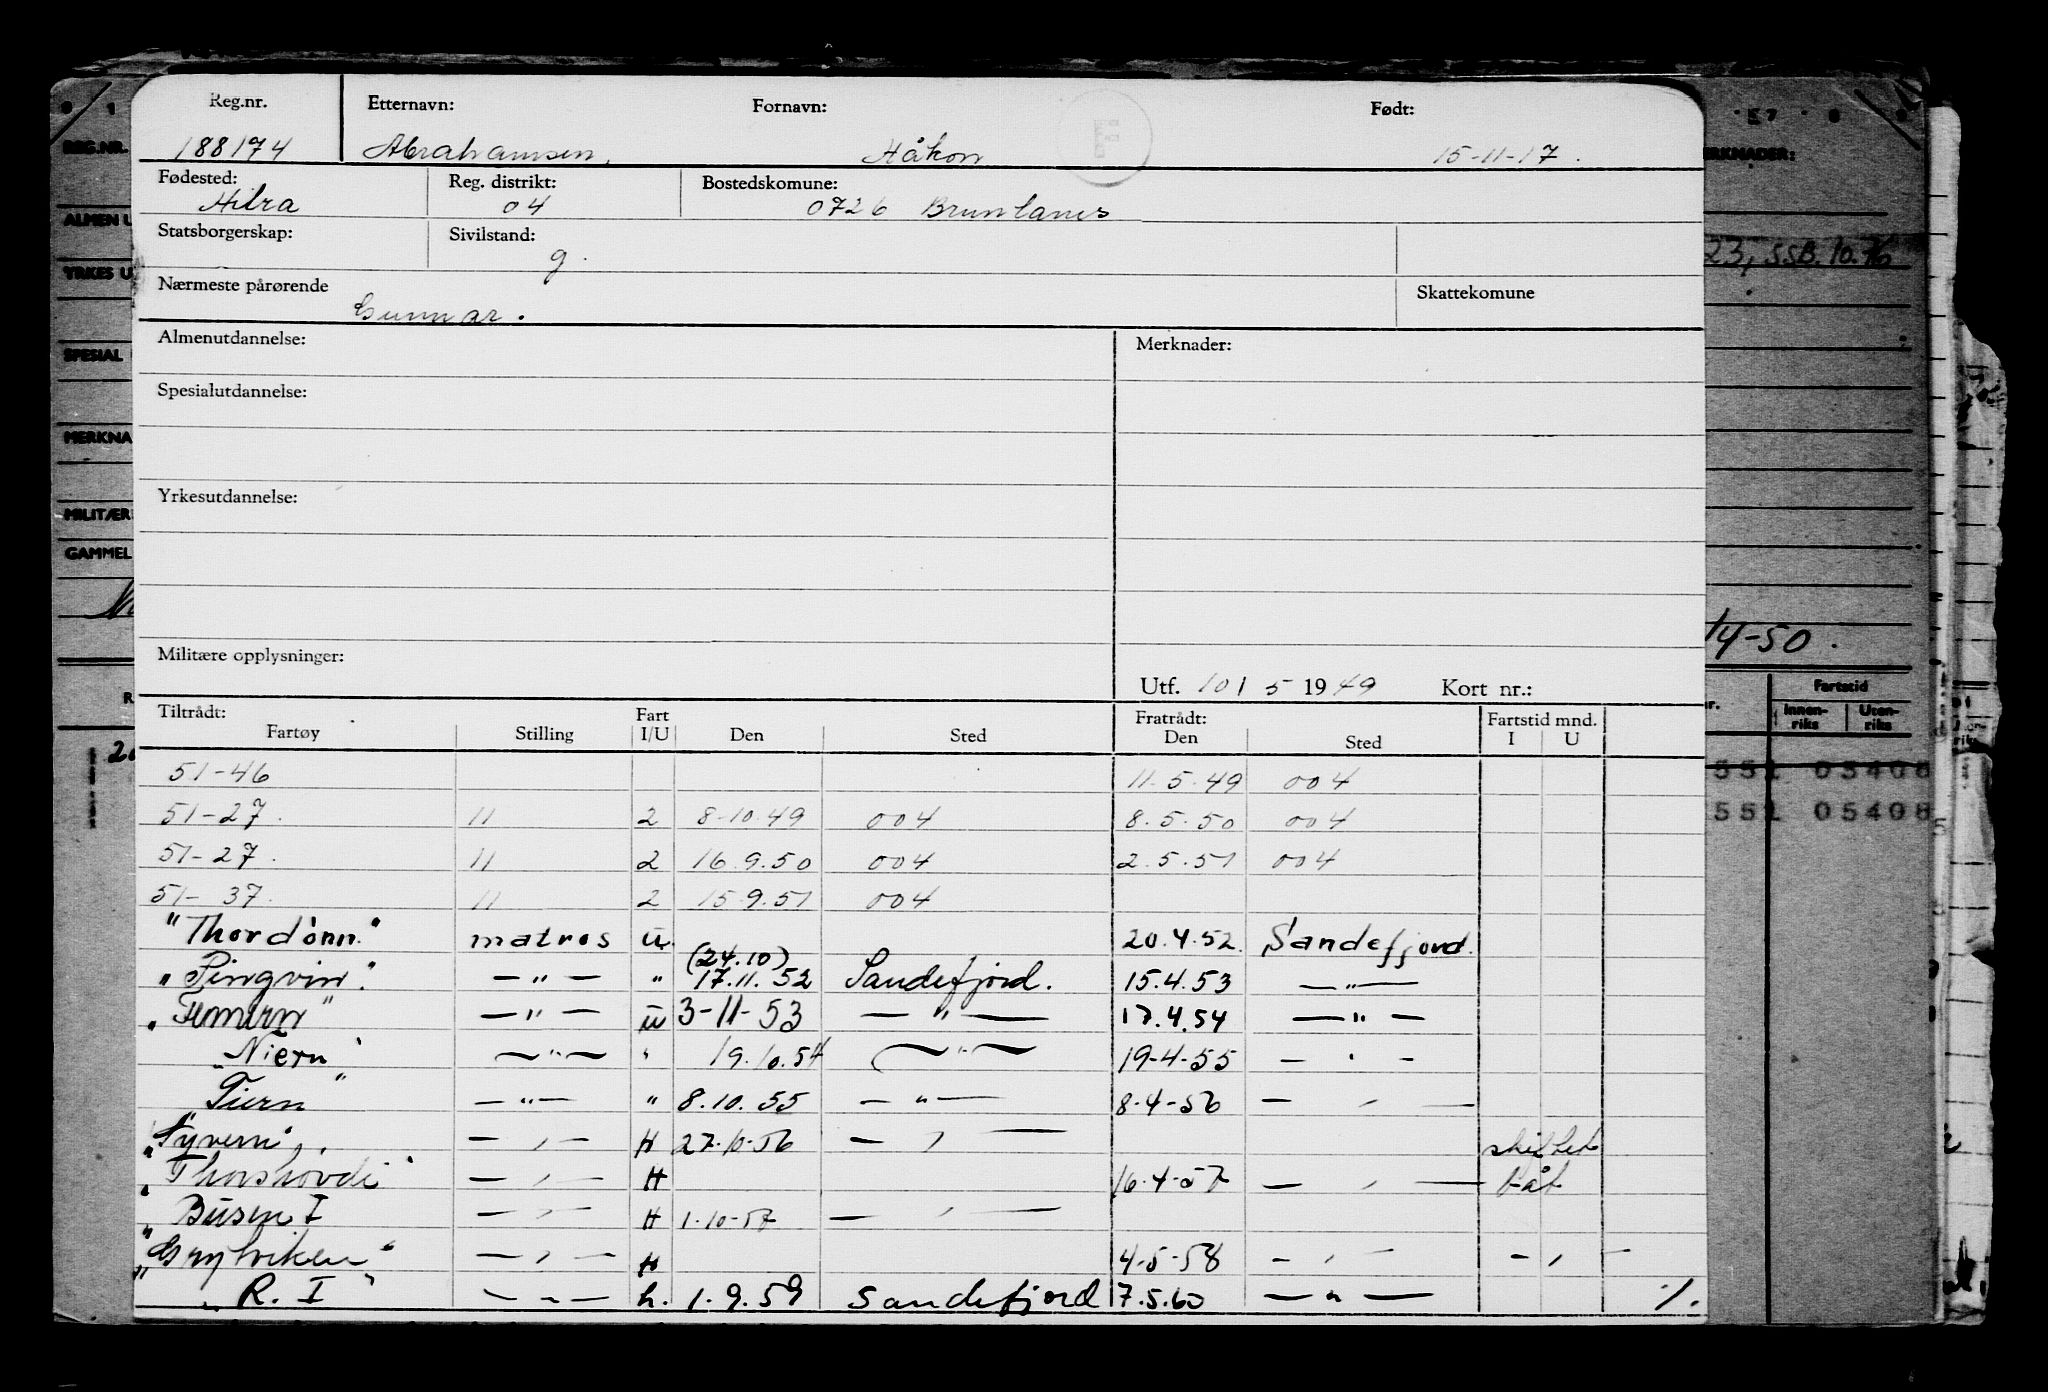 Reg.nr. Etternavn: Fornavn: Født:
188174 Abrahamsen, Håkon 15-11-17.
Fødested: Reg. distrikt: Bostedskomune:
Hitra 04 0726 Brunlanes
Statsborgerskap: Sivilstand:
g.
Nærmeste pårørende Skattekomune
Gunnar.
Almenutdannelse: Merknader:
Spesialutdannelse:
Yrkesutdannelse:
Militære opplysninger:
Utf. 101 5 1949 Kort nr.:
Tiltrådt: Fart Fratrådt: Fartstid mnd.
Fartøy Stilling I/U Den Sted Den Sted I U
51-46 11.5.49 004
51-27. 11 2 8-10.49 004 8.5.50 004
51-27. 11 2 16.9.50 004 2.5.51 004
51-37. 11 2 15.9.51 004
"Thordönn." matros u. 20.4.52. Sandefjord.
(24.10)
"Pingvin". —"— " 17.11.52 Sandefjord. 15.4.53 —"—
"Femern" —"— u 3-11-53 —"— 17.4.54 —"—
"Niern" —"— " 19.10.54 —"— 19-4-55 — " —
Tiern" —"— " 8.10.55 —"— 8-4-56 — " —
"Syvern", — " — H 27-10-56 — " — skiftet
"Thorshövdi" — " — H 16-4-57 — " — båt
"Busen I — " — H 1-10-57 — " —
"Grytviken" — " — H 4-5-58 — " — — " —
"R. I" — " — h. 1.9.59 Sandefjord 7.5.60 — " — ⁒
REG.NR.
ALMEN U
YRKES U
SPESIAL
MERKNA
MILITÆR
GAMMEL
ERKNADER:
23, SSB. 10.76
14-50.
Fartstid
Innen-riks Uten-riks
551 05408
551 05408